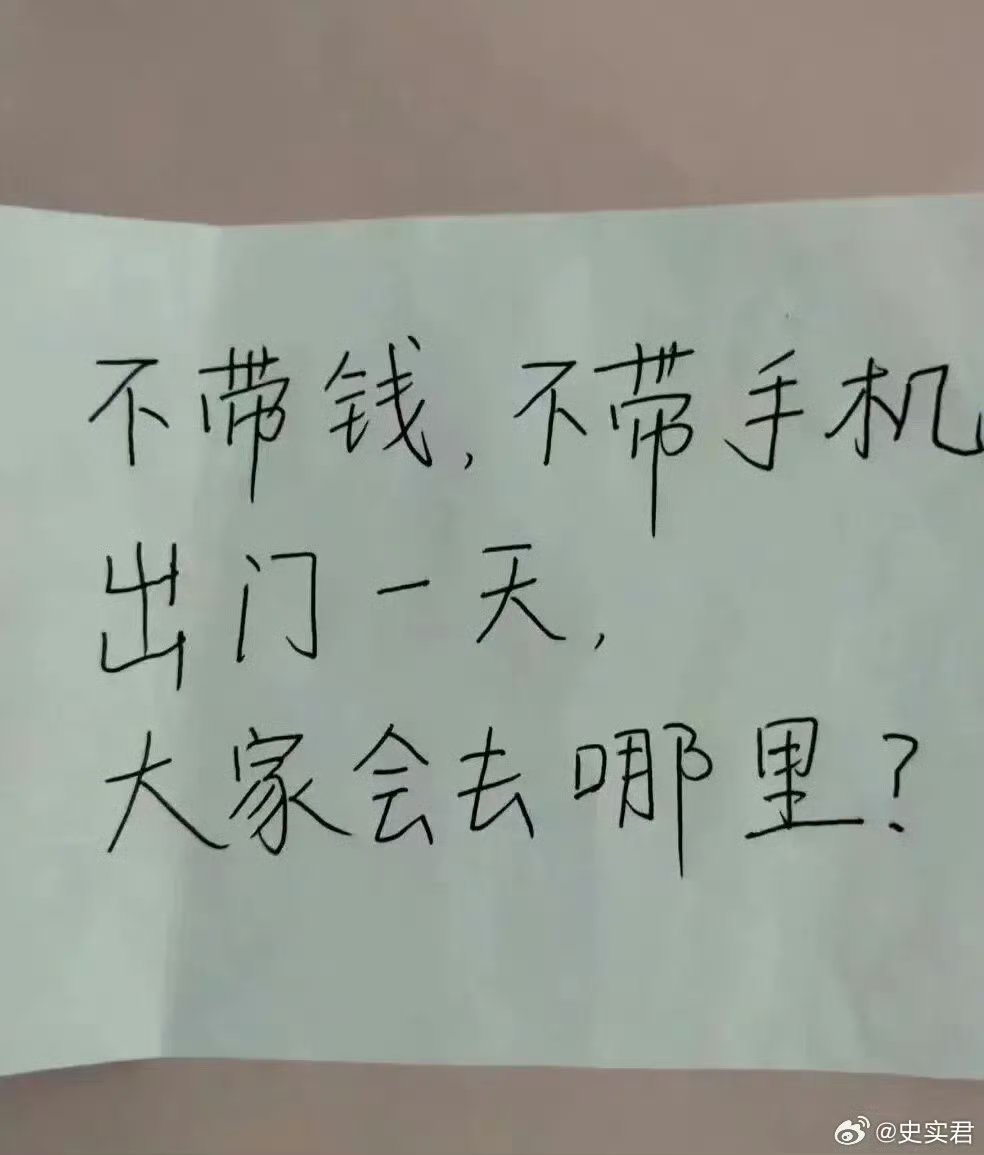 不带钱,不带手机
出门一天,
大家会去哪里?
@史实君